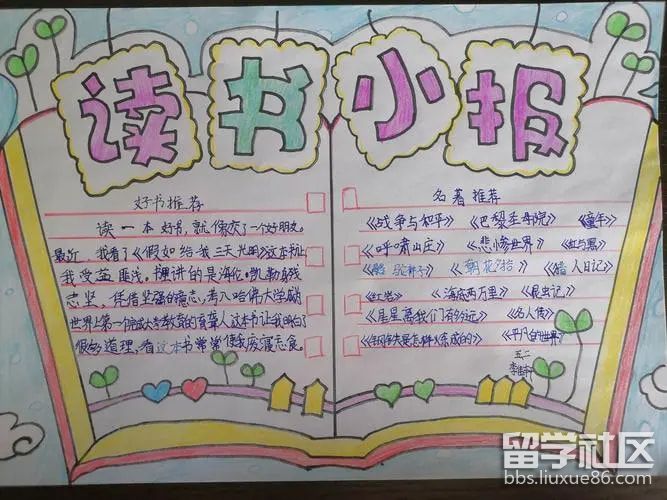 读书小报
好书推荐
读一本好书,就像交了一个好朋友。
最近,我看了《假如给我三天光明》这本书让
我受益匪浅。书里讲的是海伦·凯勒身残
志坚,凭借坚强的意志,考入哈佛大学成
世界上第一个完成大学教育的盲聋人这本书让我明白了
很多道理,看这本书常常使我废寝忘食。
名著推荐
《战争与和平》《巴黎圣母院》《童年》
《呼啸山庄》《悲惨世界》《红与黑》
《骆驼祥子》《朝花夕拾》《猎人日记》
《红岩》《海底两万里》《昆虫记》
《星星离我们有多远》《名人传》
《钢铁是怎样炼成的》《平凡的世界》
五二
李
留学社区
bbs.liuxue86.com